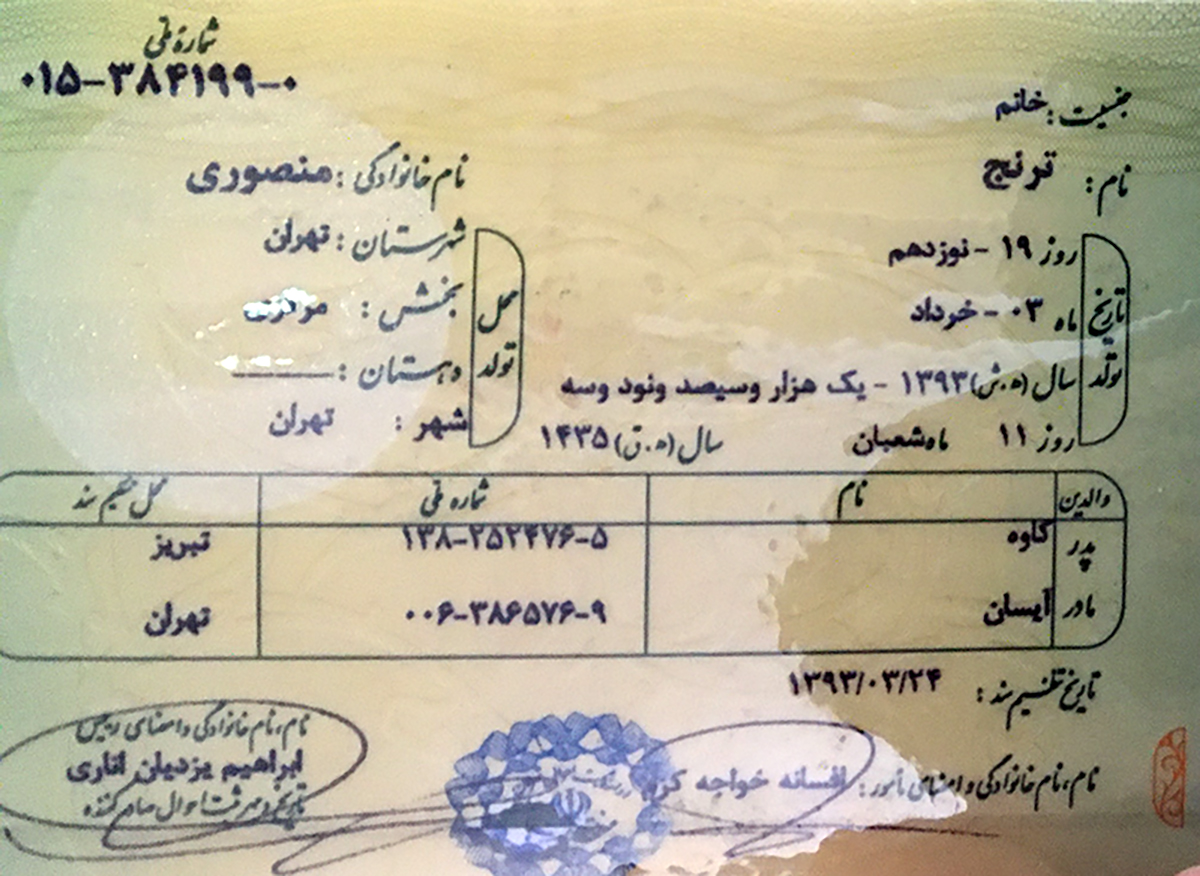 شماره ملی
۰۱۵-۳۸۴۱۹۹-۰
جنسیت: خانم
نام: ترنج
نام خانوادگی: منصوری
تاریخ تولد
روز ۱۹ - نوزدهم
ماه ۰۳ - خرداد
سال (ه.ش) ۱۳۹۳ - یک هزار وسیصد ونود وسه
روز ۱۱ ماه شعبان سال (ه.ق) ۱۴۳۵
محل تولد
شهرستان: تهران
بخش: مرکزی
دهستان:
شهر: تهران
والدین نام شماره ملی محل تنظیم سند
پدر کاوه ۱۳۸-۲۵۲۴۷۶-۵ تبریز
مادر آیسان ۰۰۶-۳۸۶۵۷۶-۹ تهران
تاریخ تنظیم سند: ۱۳۹۳/۰۳/۲۴
نام، نام خانوادگی و امضای مأمور: افسانه خواجه
نام، نام خانوادگی و امضای رییس
ابراهیم یزدیان اناری
تاریخ و مهر ثبت احوال صادر کننده